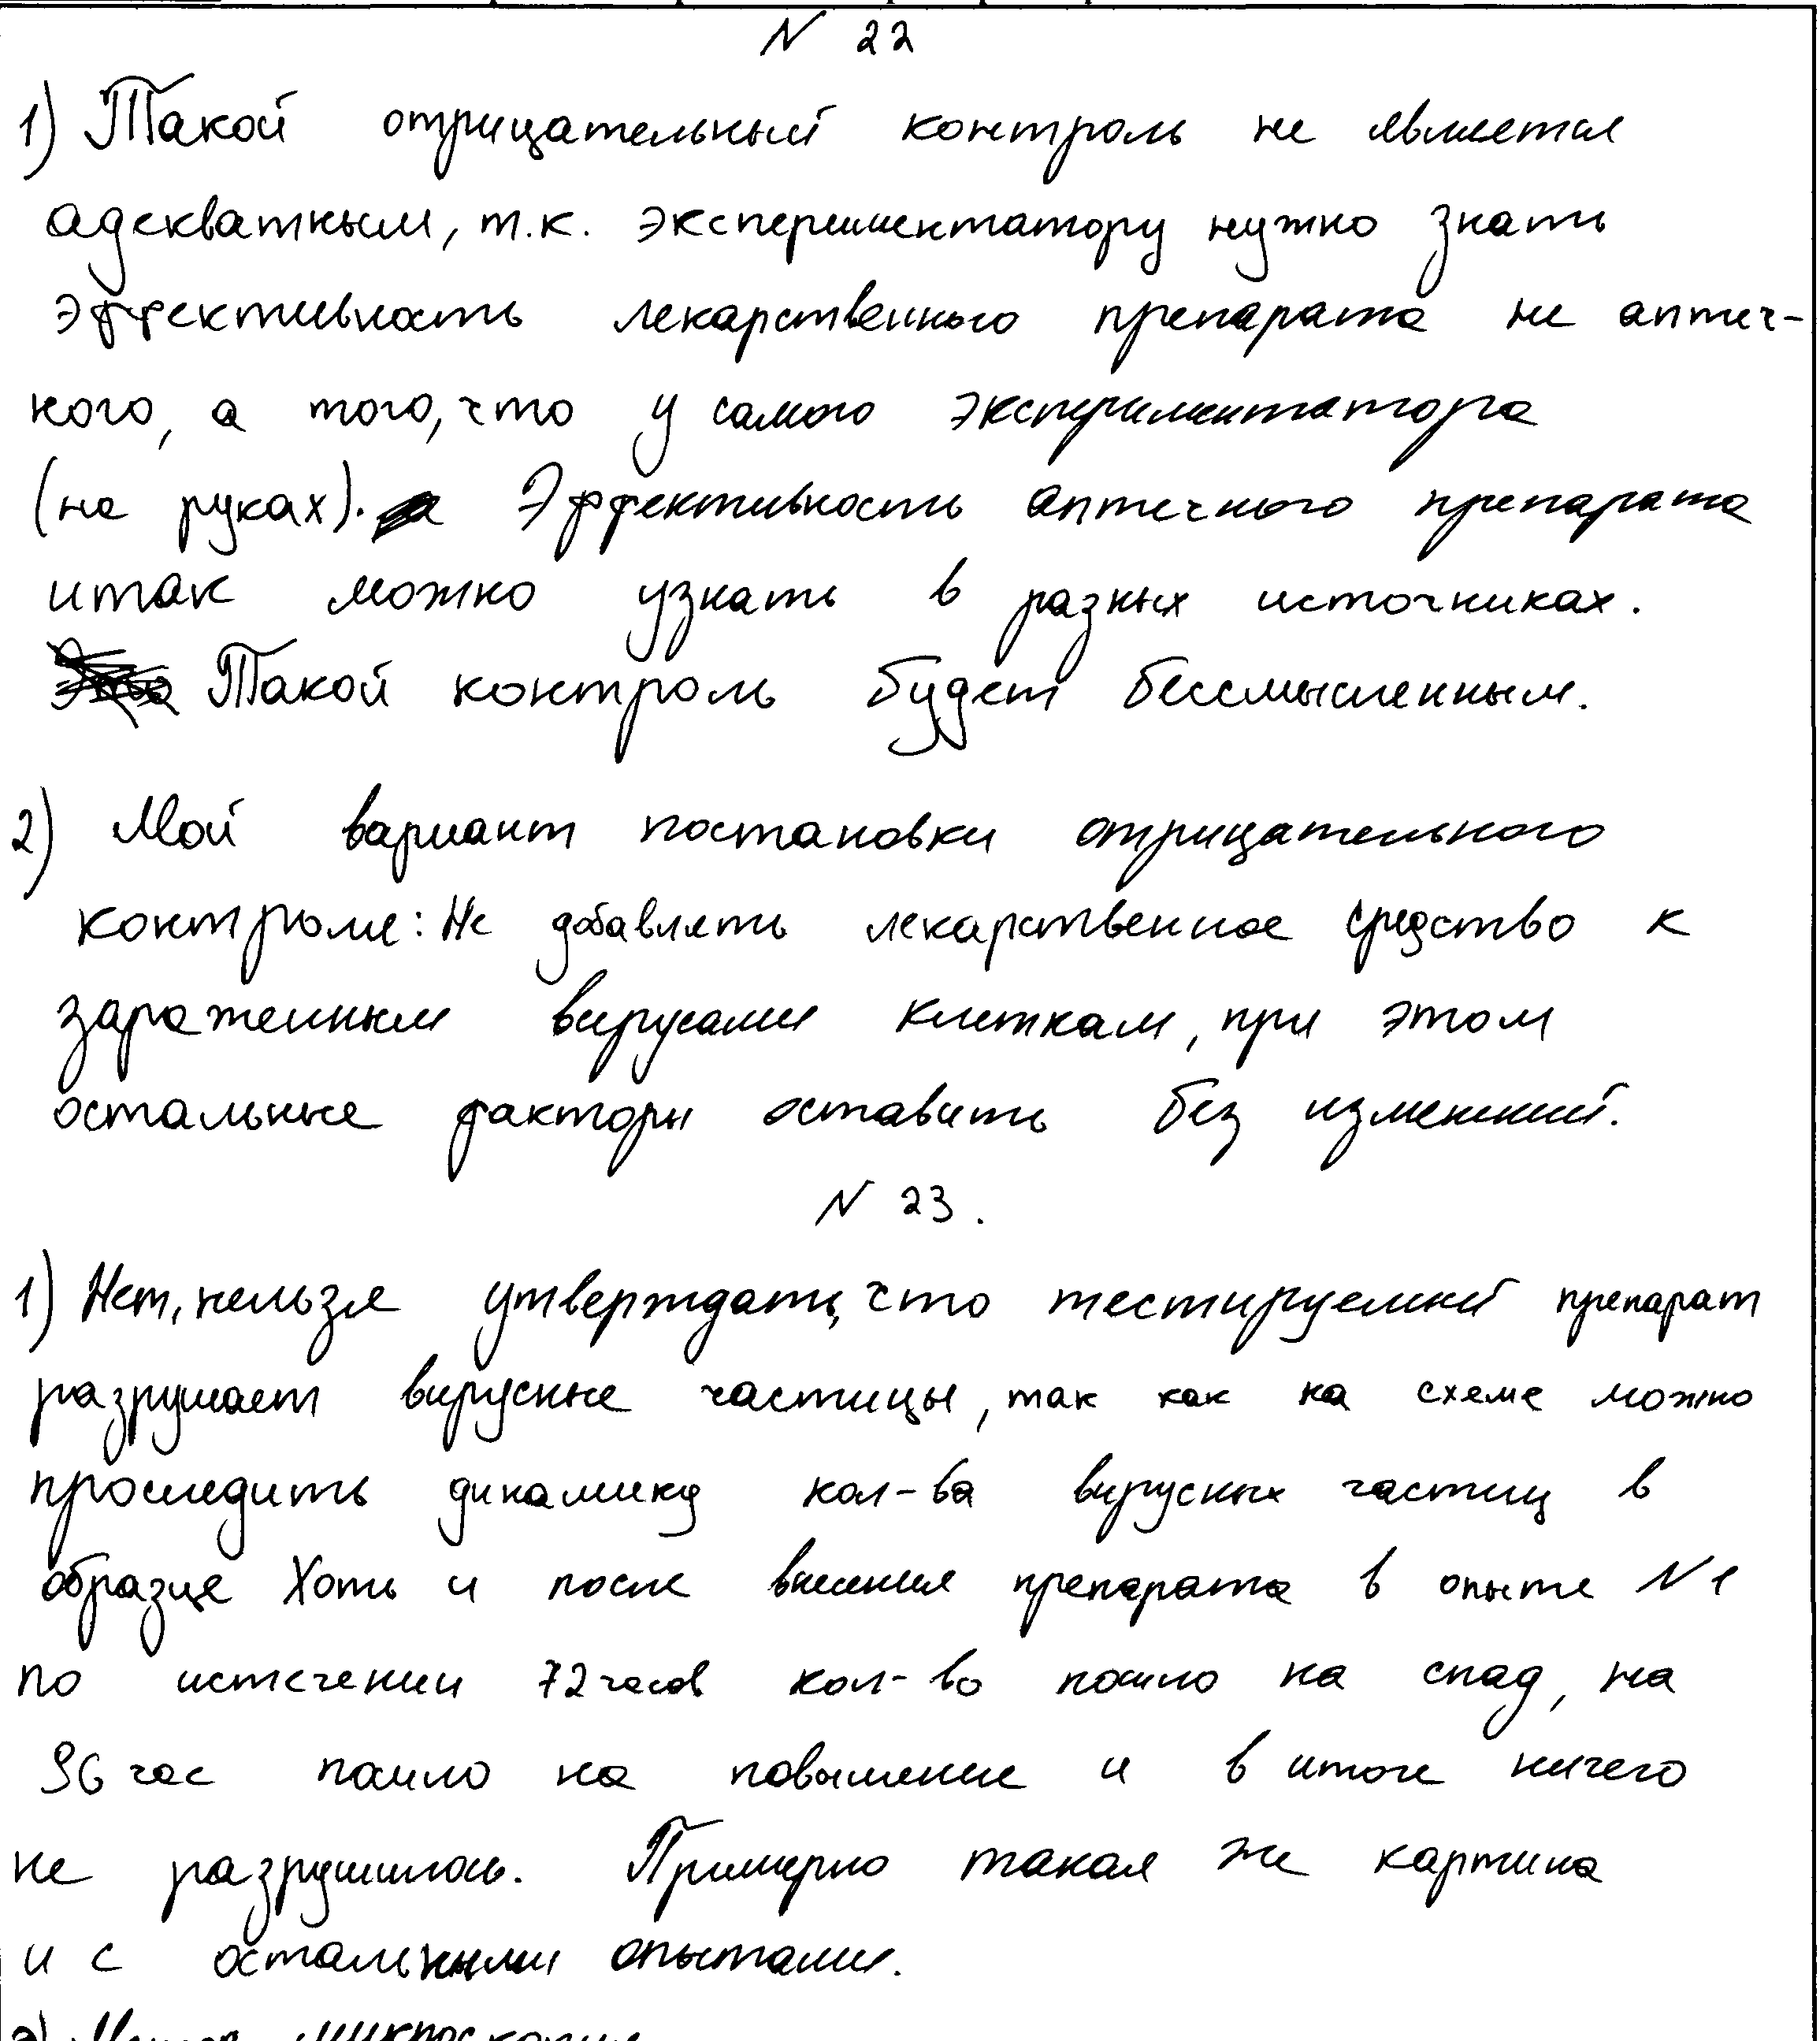 N 22
1) Такой отрицательный контроль не является
адекватным, т.к. экспериментатору нужно знать
эффективность лекарственного препарата не аптеч-
ного, а того, что у самого экспериментатора
(на руках). Эффективность аптечного препарата
итак можно узнать в разных источниках.
Такой контроль будет бессмысленным.
2) Мой вариант постановки отрицательного
контроля: Не добавлять лекарственное средство к
зараженным вирусами клеткам, при этом
остальные факторы оставить без изменений.
N 23.
1) Нет, нельзя утверждать, что тестируемый препарат
разрушает вирусные частицы, так как на схеме можно
проследить динамику кол-ва вирусных частиц в
образце Хоть и после внесения препарата в опыте N1
по истечении 72 часов кол-во пошло на спад, на
96 час пошло на повышение и в итоге ничего
не разрушилось. Примерно такая же картина
и с остальными опытами.
2) Метод микроскопии